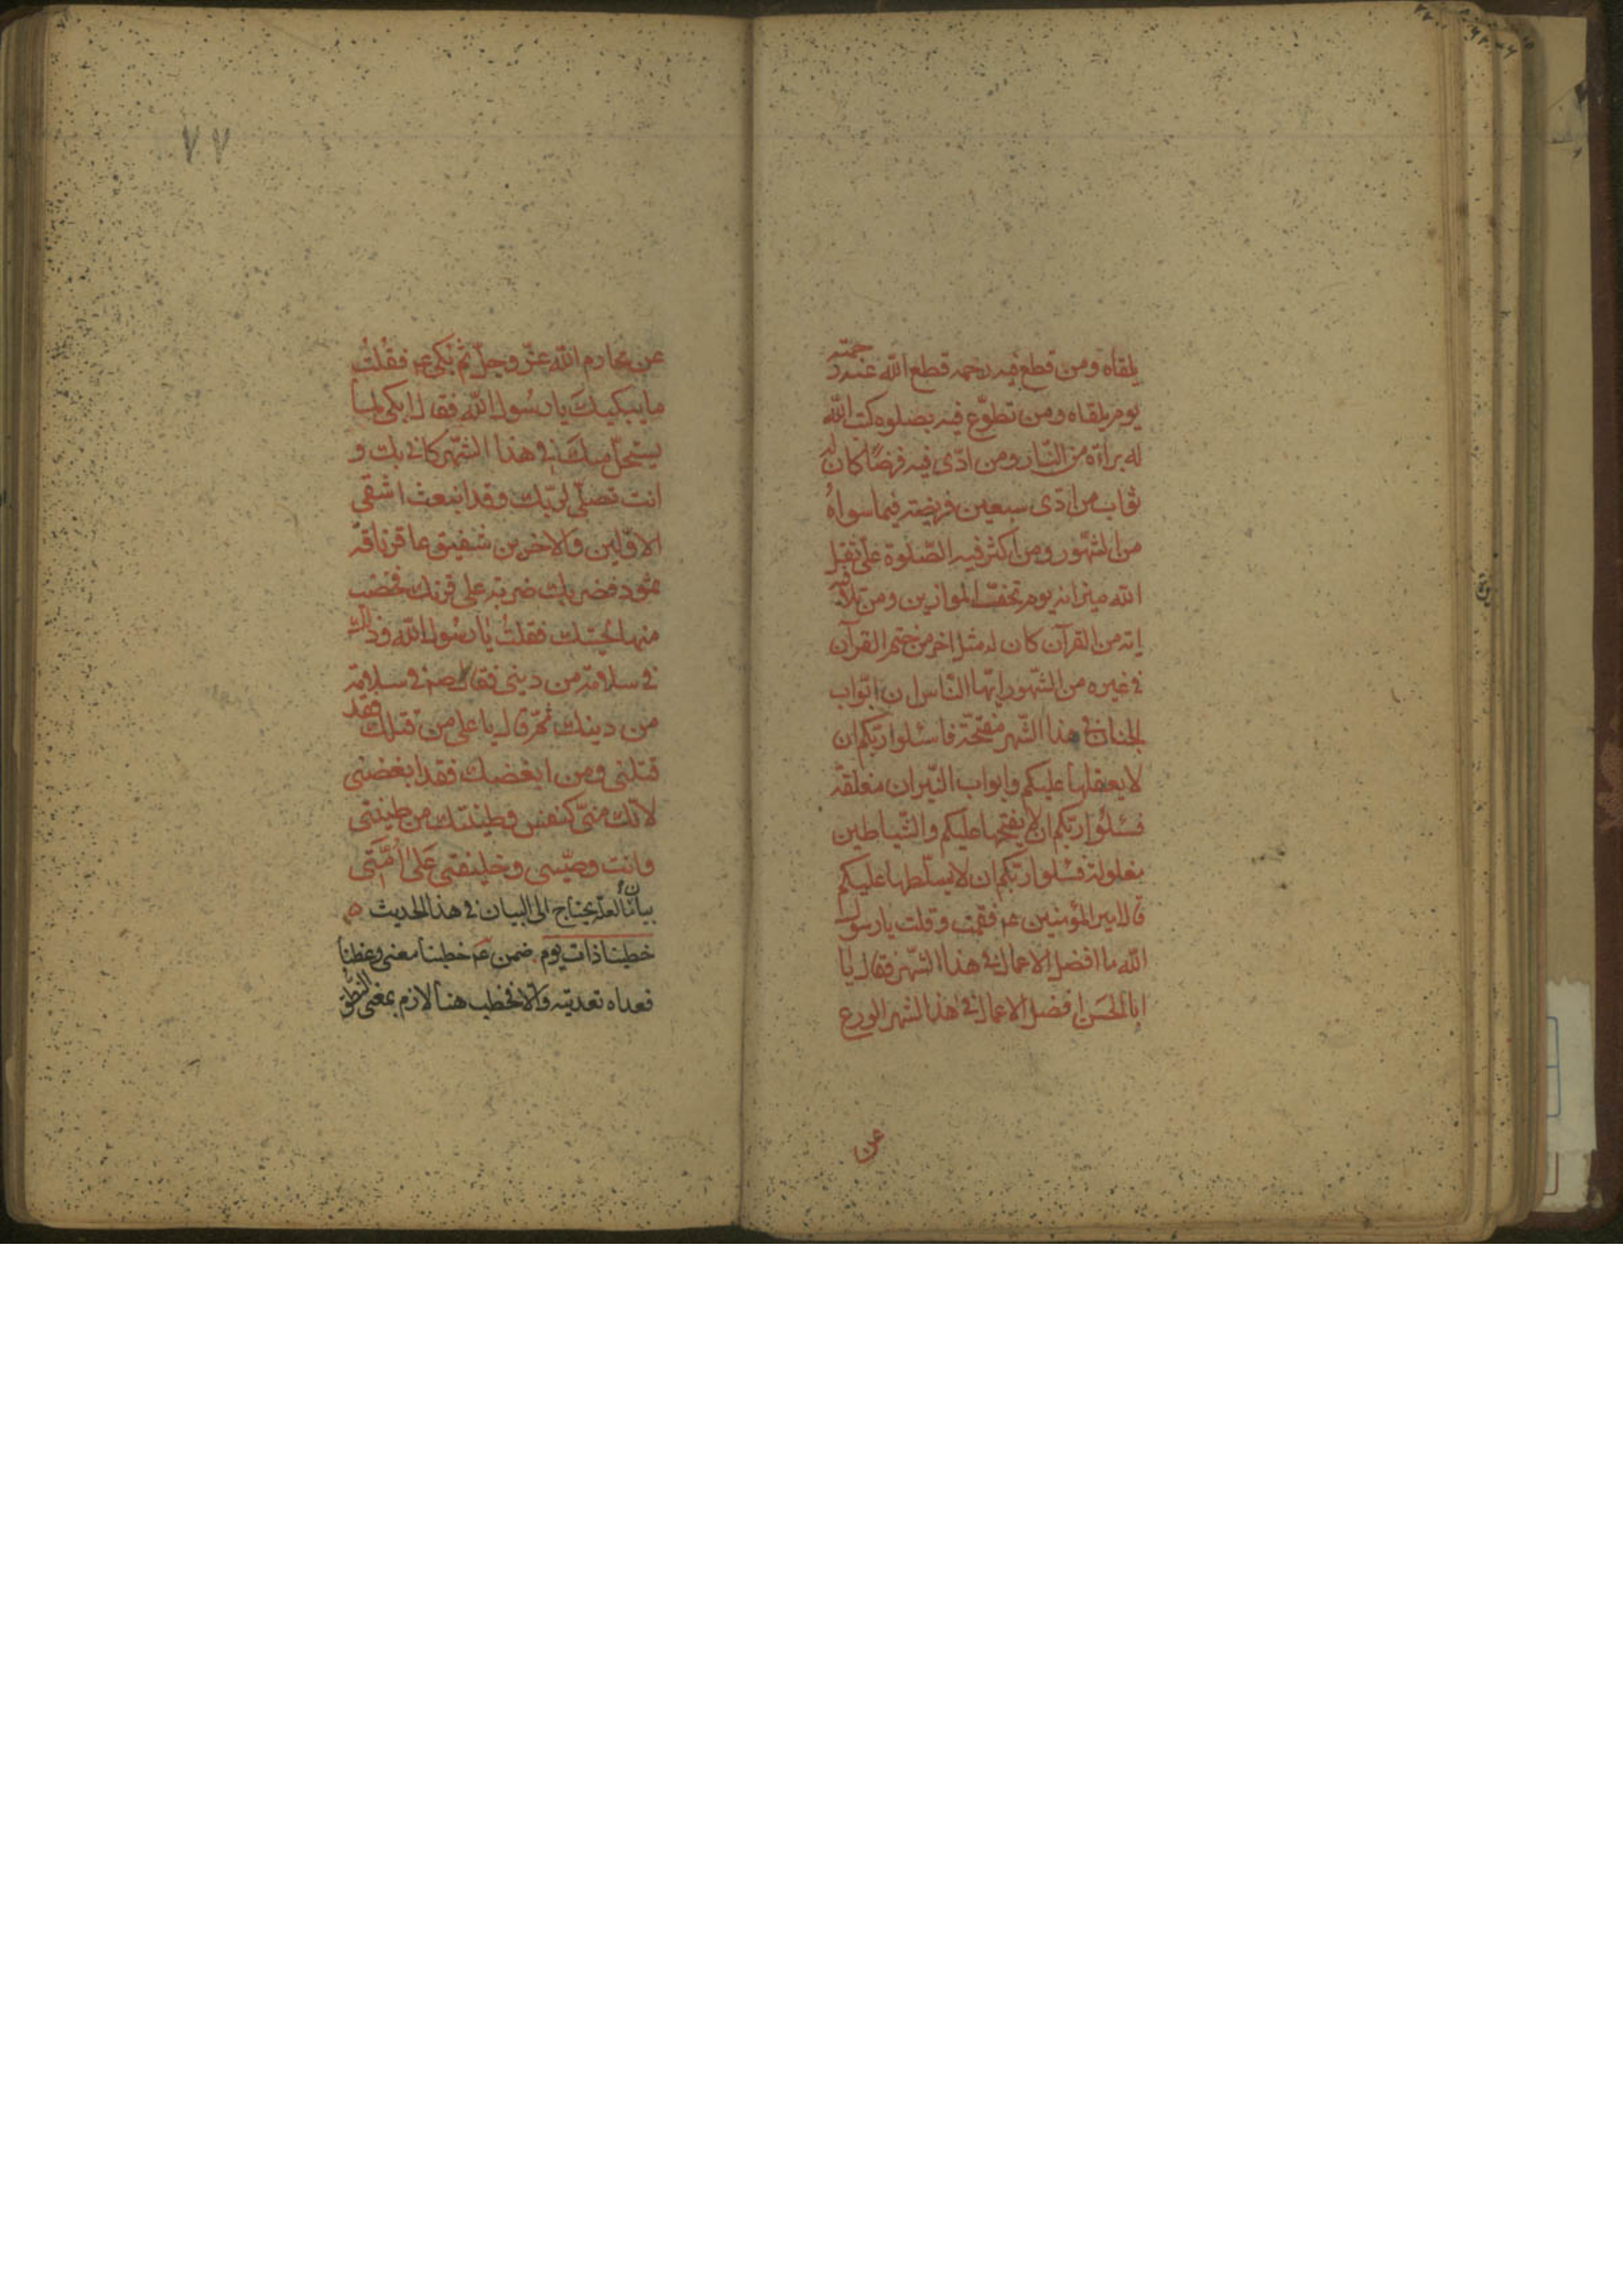 يلقاه ومن قطع فيه رحمه قطع الله عنه رحمته
يوم يلقاه ومن تطوّع فيه بصلوة كتب الله
له براءة من النّار ومن ادّى فيه فرضًا كان له
ثواب من ادّى سبعين فريضة فيما سواه
من الشهور ومن اكثر فيه الصّلوة علىّ ثقل
الله ميزانه يوم تخفّ الموازين ومن تلا فيه
اية من القرآن كان له مثل اجر من ختم القرآن
فى غيره من الشهور ايّها النّاس ان ابواب
الجنان فى هذا الشّهر مفتّحة فاسئلوا ربّكم ان
لا يغلقها عليكم وابواب النّيران مغلقة
فسئلوا ربّكم ان لا يفتحها عليكم والشّياطين
مغلولة فسئلوا ربّكم ان لا يسلّطها عليكم
قال امير المؤمنين عم فقمت وقلت يا رسول
الله ما افضل الاعمال فى هذا الشّهر فقال يا
ابا الحسن افضل الاعمال فى هذا الشهر الورع
عن
٧٧
عن محارم الله عزّ وجلّ ثم بكى عم فقلت
ما يبكيك يا رسول الله فقال ابكى لما
يستحلّ منك فى هذا الشّهر كانى بك و
انت تصلّى لربّك وقد انبعث اشقى
الاوّلين والاخرين شقيق عاقر ناقة
ثمود فضربك ضربة على قرنك فخضب
منها لحيتك فقلت يا رسول الله وذلك
فى سلامة من دينى فقال صم فى سلامة
من دينك ثمّ قال يا على من قتلك فقد
قتلنى ومن ابغضك فقد ابغضنى
لانّك منّى كنفسى وطينتك من طينتى
وانت وصيّى وخليفتى على امّتى
بيان ما لعلّه يحتاج الى البيان فى هذا الحديث
خطبنا ذات يوم ضمن عم خطبنا معنى وعظنا
فعداه تعديته والا فخطب هنا لازم بمعنى النطق